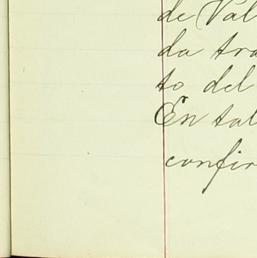 de Val
da tra
to del
En tal
confir